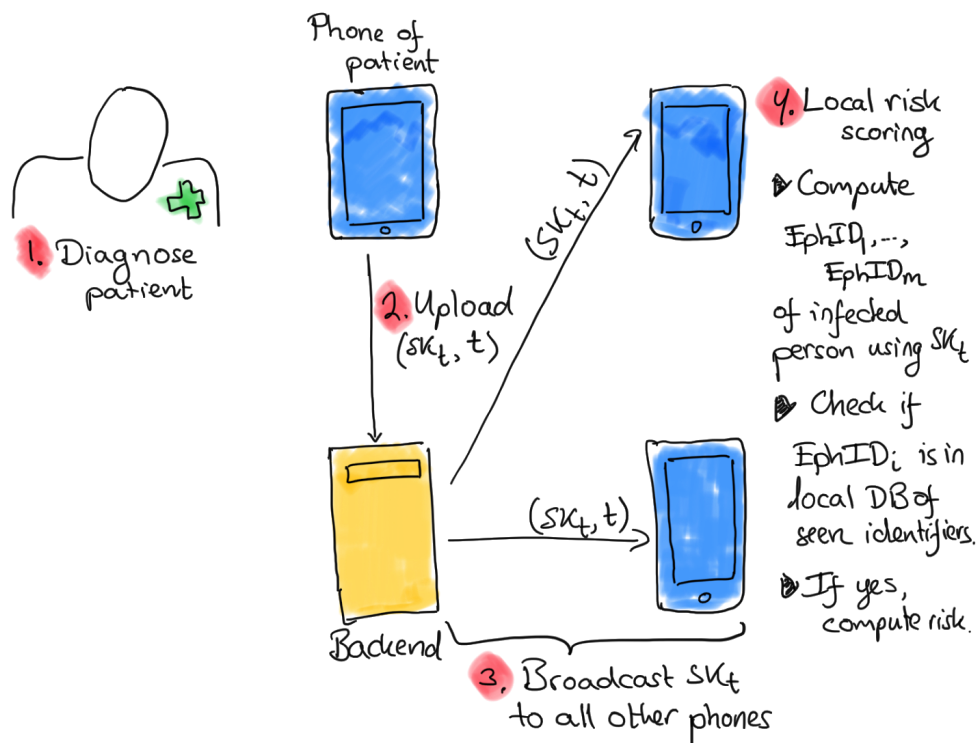 1. Diagnose
patient
Phone of
patient
2. Upload
(SK_t, t)
Backend
(SK_t, t)
(SK_t, t)
3. Broadcast SK_t
to all other phones
4. Local risk
scoring
Compute
EphID_1,...,
EphID_m
of infected
person using SK_t
Check if
EphID_i is in
local DB of
seen identifiers.
If yes,
compute risk.